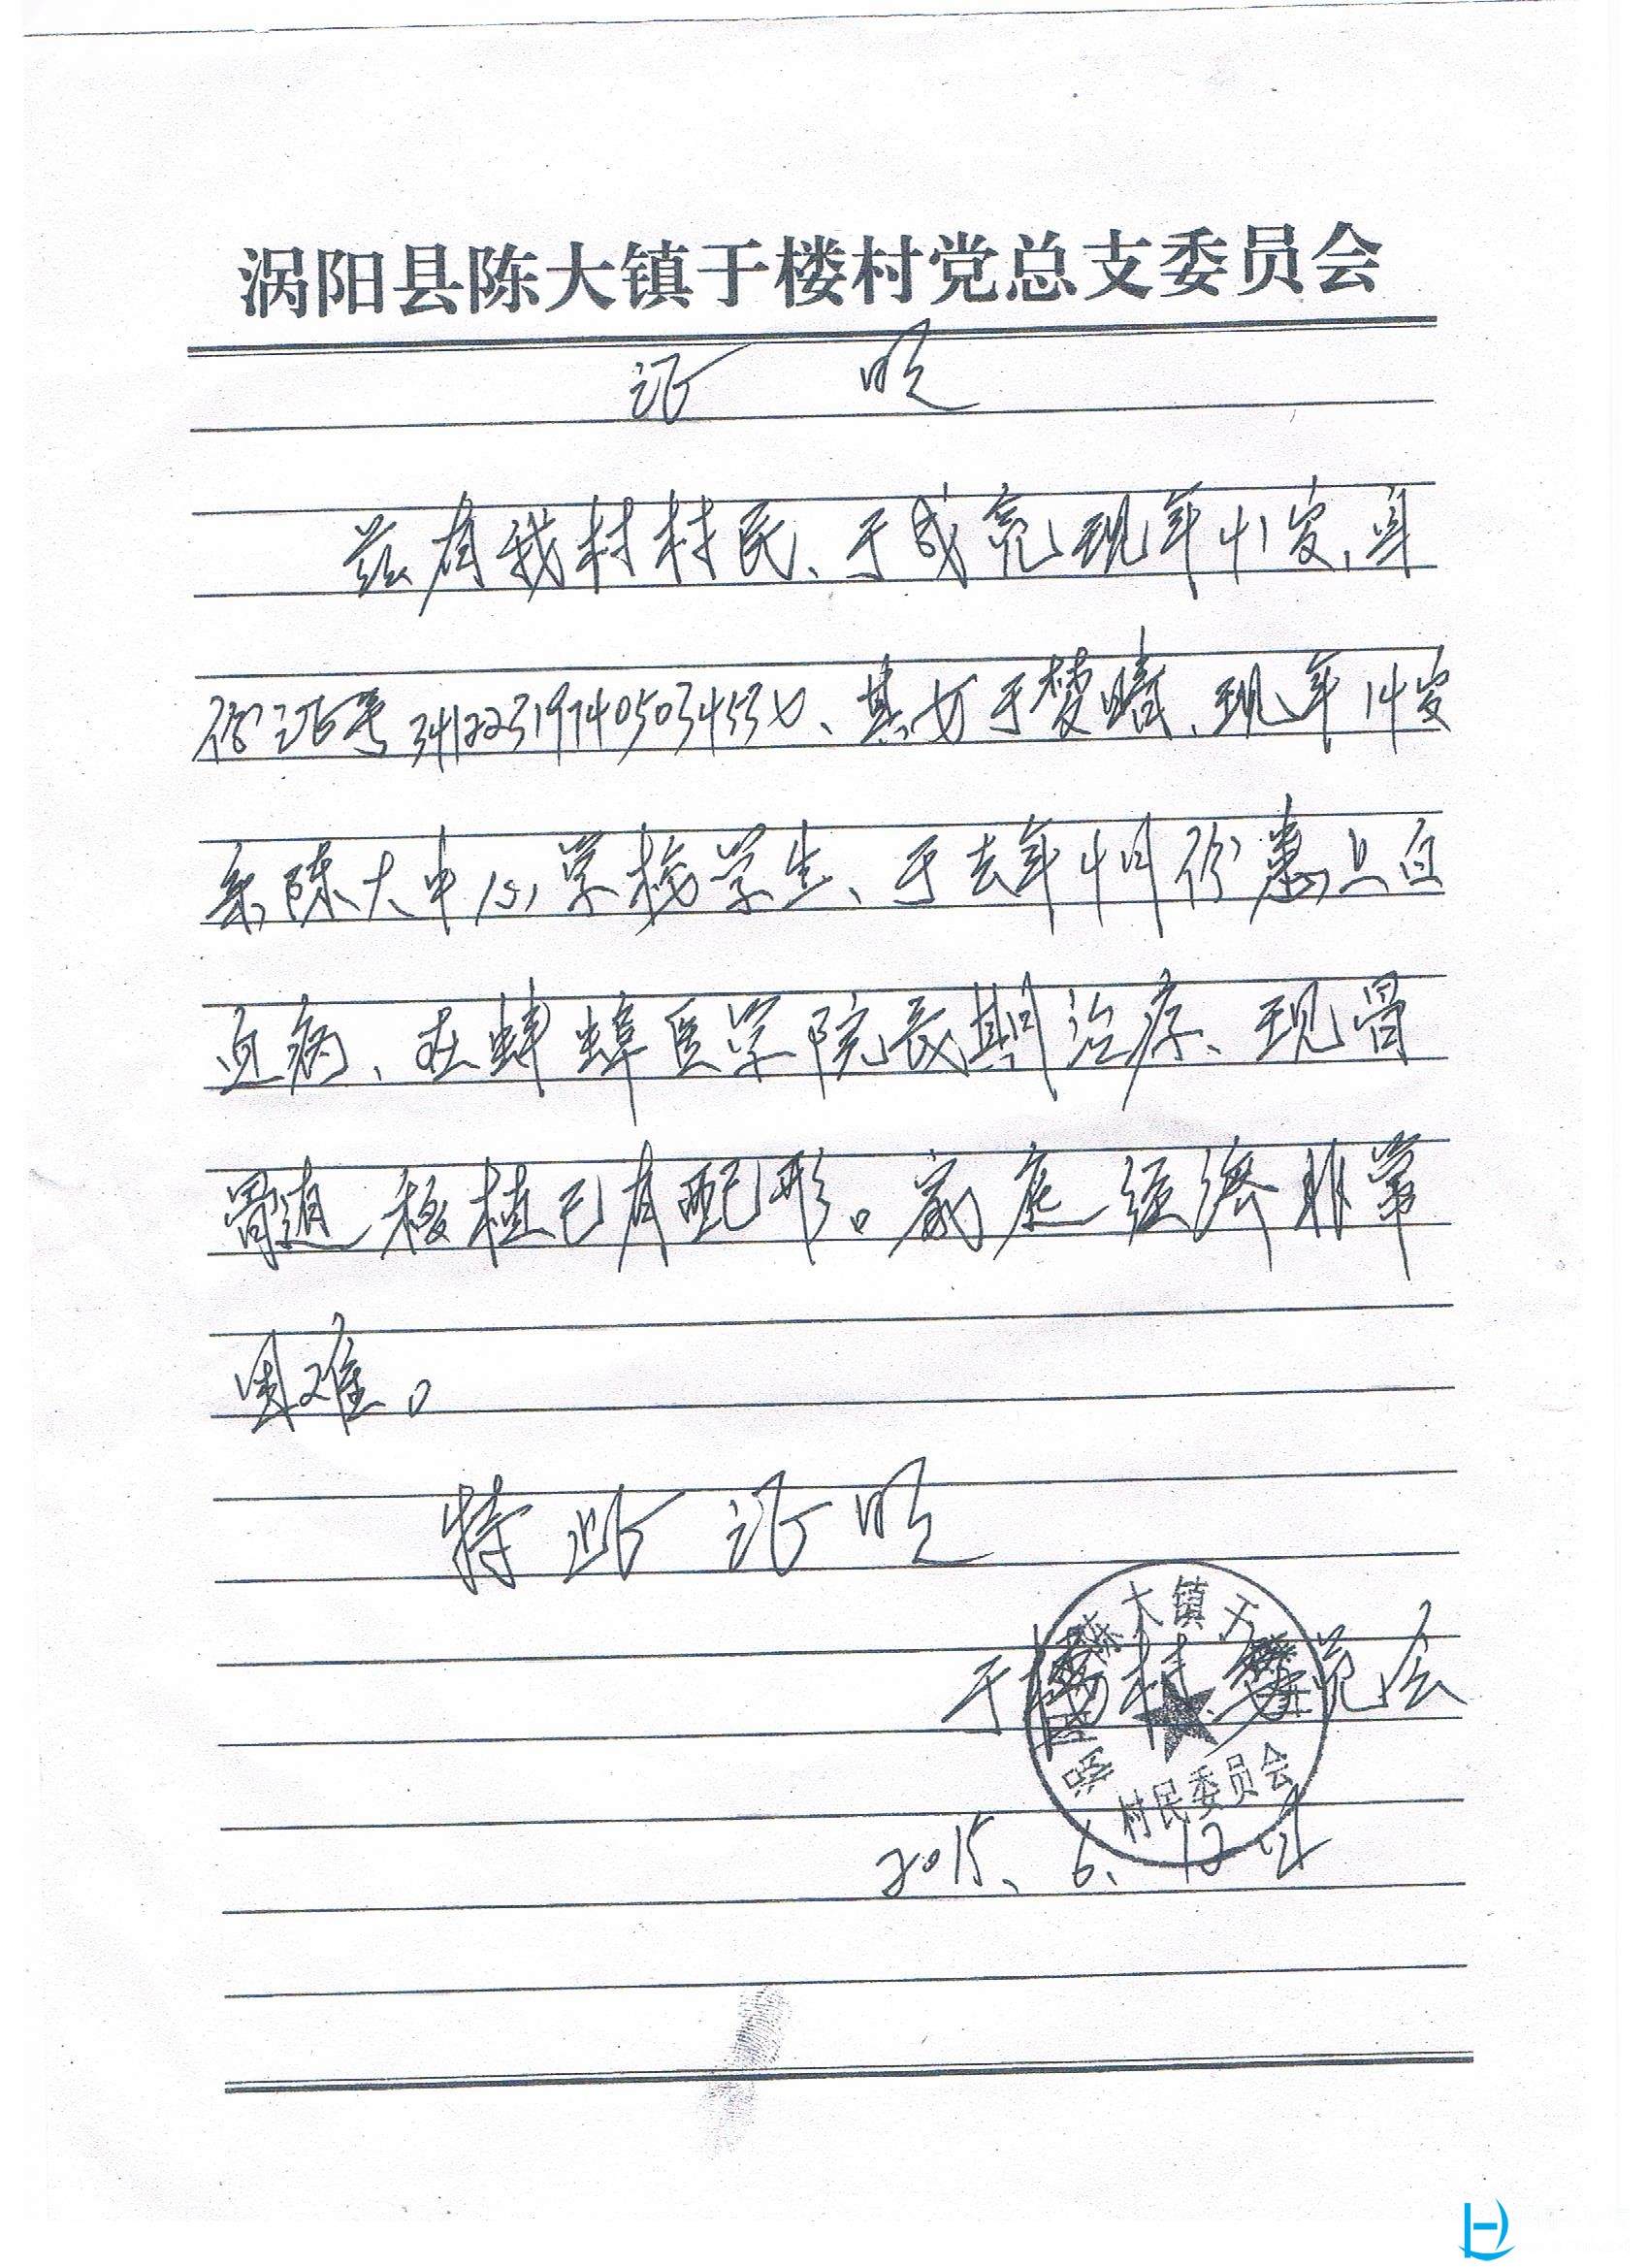 涡阳县陈大镇于楼村党总支委员会
证 明
兹有我村村民、于成亮现年41岁,身
份证号 、其女于梦晴、现年14岁
系陈大中心学校学生、于去年4月份患上白
血病、在蚌埠医学院长期治疗、现骨
骨髓移植已有配形。家庭经济非常
困难。
特此证明
于楼村委员会
大镇于
村民委员会
2015、6、12号